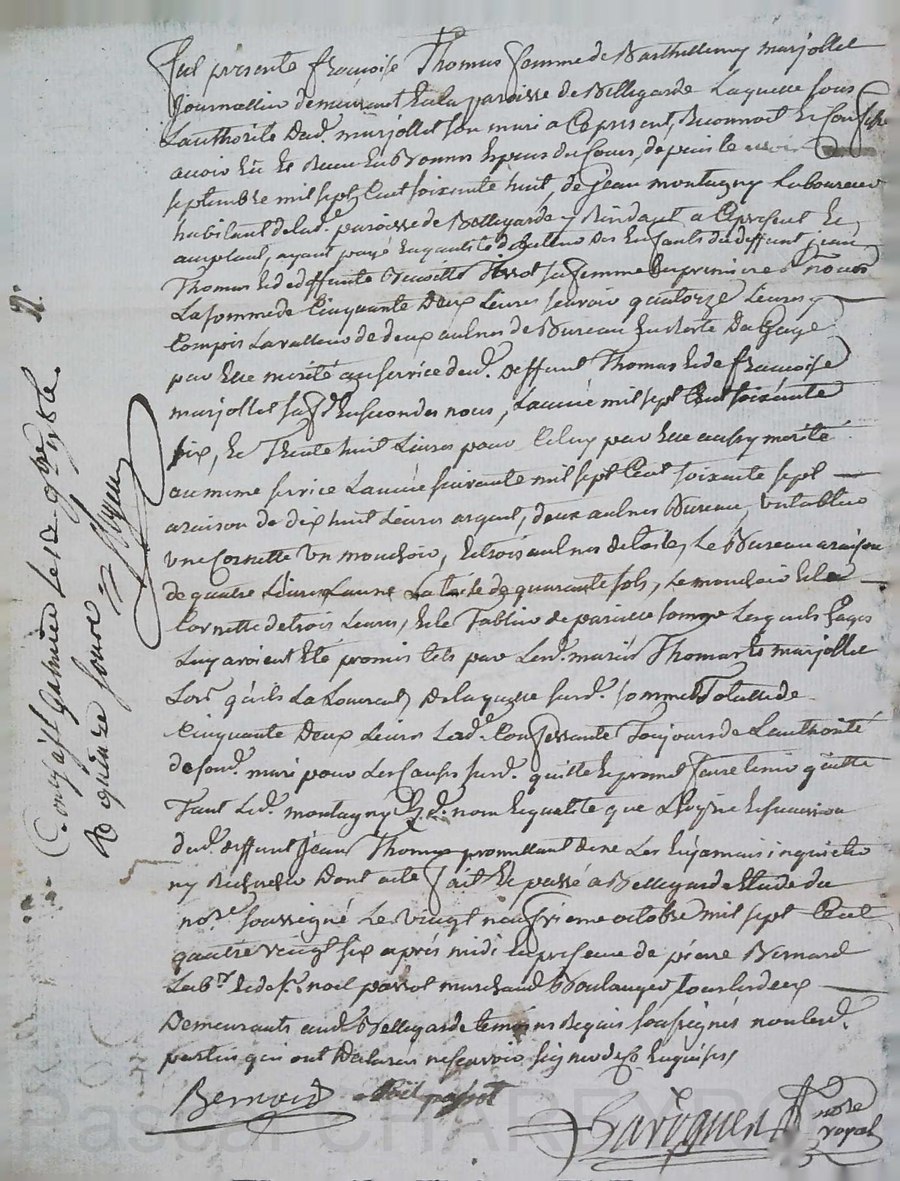 fut présente françoise Thomas femme de Barthellemy marjollet
journallier demeurant en la paroisse de Bellegarde Laquelle sous
L'authorité dud. marjollet son mari a ce présent, Reconnoit et confesse
avoir eu et Receu en Bonnes Espèces du Cours, depuis le
septembre mil sept Cent soixante huit, de jean montagny Laboureur
habitant de lad. paroisse de Bellegarde y Résidant a ce présent et
acceptant, ayant payé en qualité de des Enfants du deffunt jean
Thomas et de deffunte sa femme En premieres noces
La somme de Cinquante Deux Livres scavoir quatorze Livres y
Compris La valleur de deux aulnes de Bureau En reste Du Gage
par Elle mérité au service dud. deffunt Thomas et de françoise
marjollet sa fe En secondes noces, L'année mil sept Cent soixante
six, Et Trente huit Livres pour Celuy par Elle aussy mérité
au même service L'année suivante mil sept Cent soixante sept
a raison de dix huit Livres argent, deux aulnes Bureau, un tablier
une Cornette un mouchoir, et trois aulnes de toile, Le Bureau a raison
de quatre Livres L'aune La toile de quarante sols, Le mouchoir et la
Cornette de trois Livres, et le Tablier de pareille somme Lesquels Gages
Luy avoient été promis tels par Lesd. mariés Thomas et marjollet
Lors qu'ils La Louerent De laquelle susd. somme Totalle de
Cinquante Deux Livres Lad. Confessante Toujours de L'authorité
de sond. mari pour Les Causes susd. quitte et promet faire tenir quitte
Tant Led. montagny nom et qualité que L'hoirie et succession
dud. deffunt Jean Thomas promettant de ne Les En jamais inquietter
ny Rechercher Dont acte fait et passé a Bellegarde Etude du
nore soussigné Le vingt neufvieme octobre mil sept Cent
quatre vingt six après midi En présence de pierre Bernard
Labr. et de sr. noel passot marchand Boulanger tous Les deux
Demeurants aud. Bellegarde temoins Requis soussignés non Lesd.
parties qui ont Déclaré ne scavoir signer de ce Enquises,
Bernard Noël passot
nore
royal
Con. a St Galmier Le 12 9bre 1786.
R quinze sous
Pascal CHAREYRON